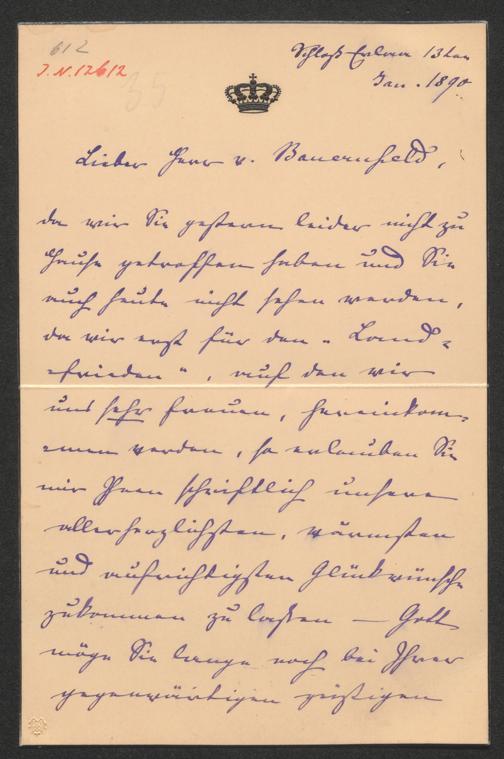 612
J.N. 12612
35
Schloß 13ten
Jan. 1890
Lieber Herr v. Bauernfeld,
da wir Sie gestern leider nicht zu
Hause getroffen haben und Sie
auch heute nicht sehen werden,
da wir erst für den „Land-
frieden", auf den wir
uns sehr freuen, hereinkom-
men werden, so erlauben Sie
mir Ihnen schriftlich unsere
allerherzlichsten, wärmsten
und aufrichtigsten Glückwünsche
zukommen zu lassen — Gott
möge Sie lange noch bei Ihrer
gegenwärtigen geistigen